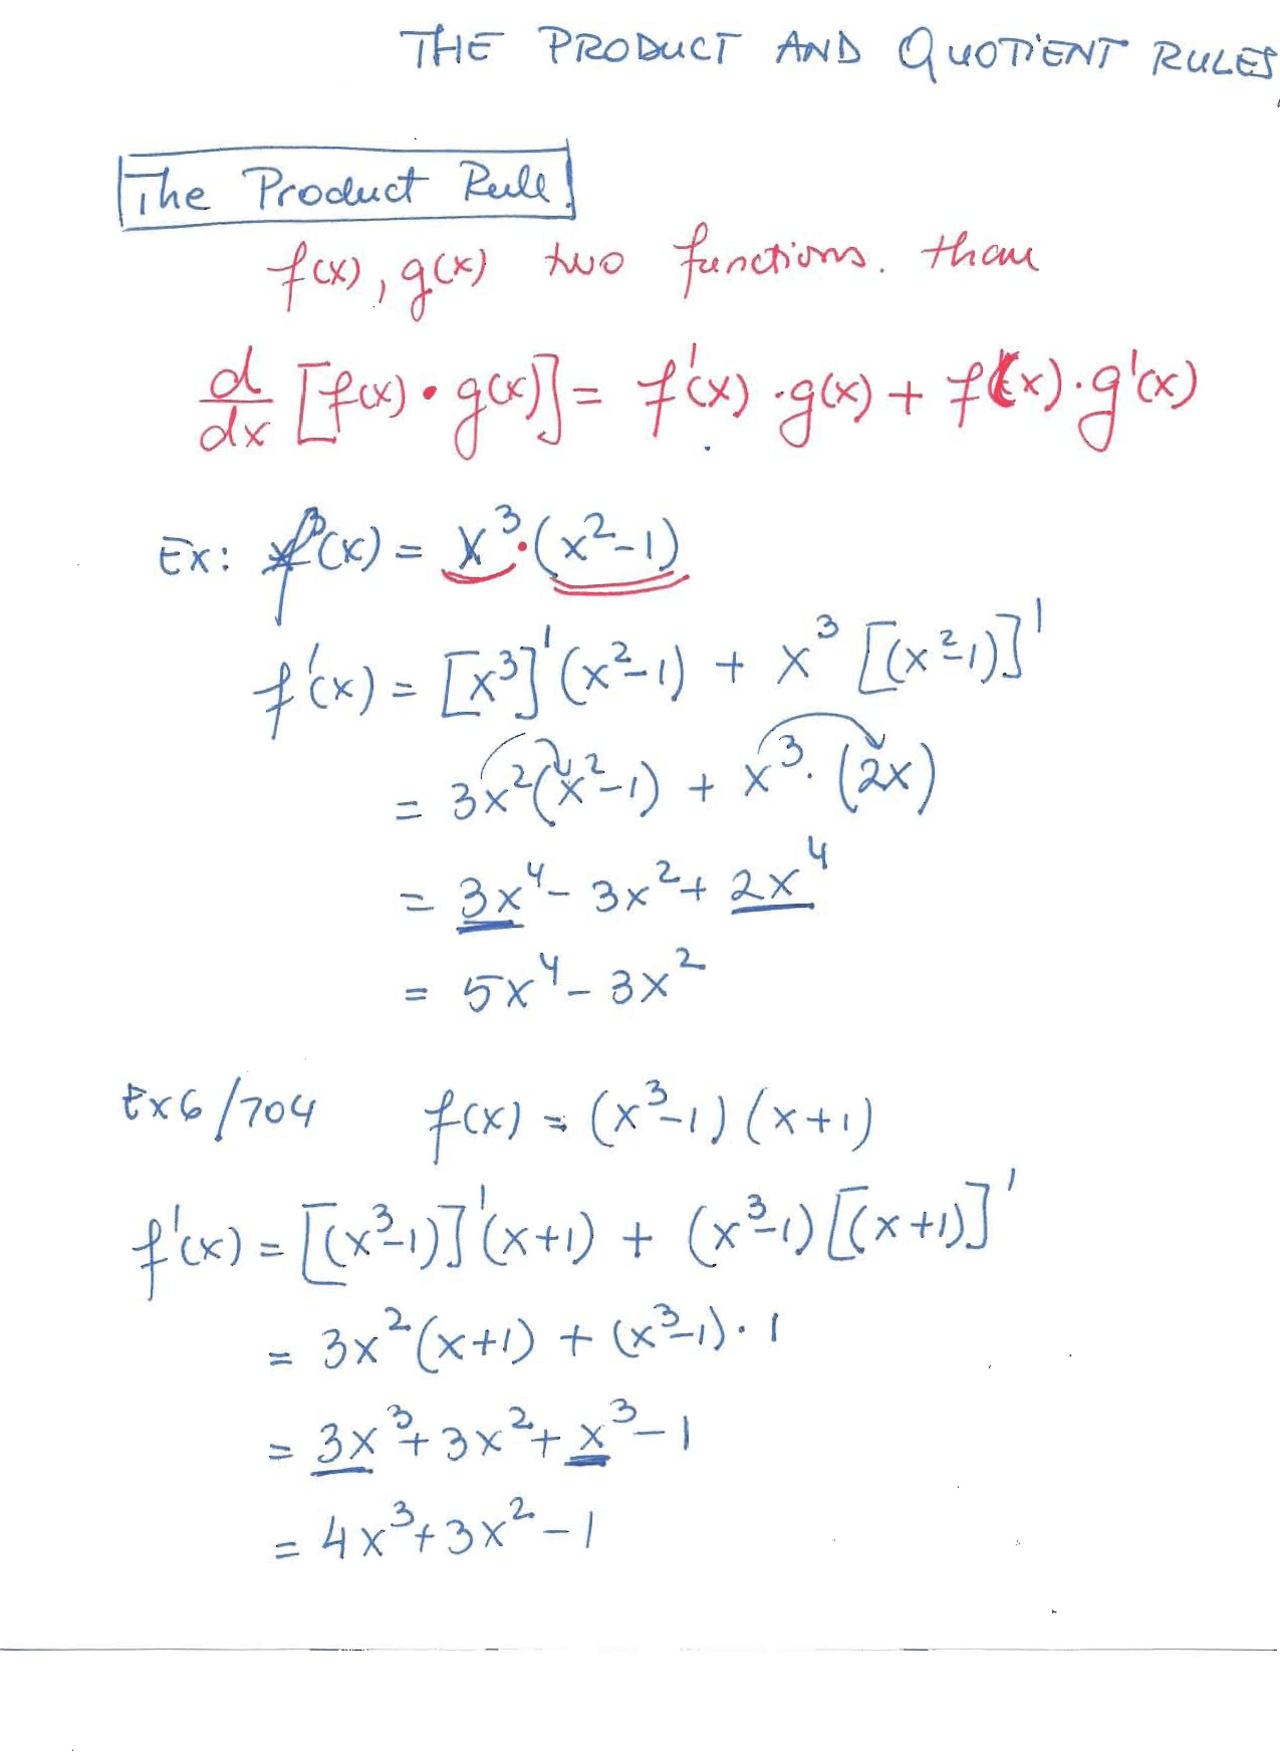 THE PRODUCT AND QUOTIENT RULES
The Product Rule
f(x), g(x) two functions. than
d/dx [f(x) • g(x)] = f'(x) · g(x) + f(x) · g'(x)
Ex: f(x) = x³·(x²-1)
f'(x) = [x³]'(x²-1) + x³ [(x²-1)]'
= 3x²(x²-1) + x³·(2x)
= 3x⁴ - 3x² + 2x⁴
= 5x⁴ - 3x²
Ex6/704 f(x) = (x³-1)(x+1)
f'(x) = [(x³-1)]'(x+1) + (x³-1)[(x+1)]'
= 3x²(x+1) + (x³-1)·1
= 3x³+3x²+x³-1
= 4x³+3x²-1